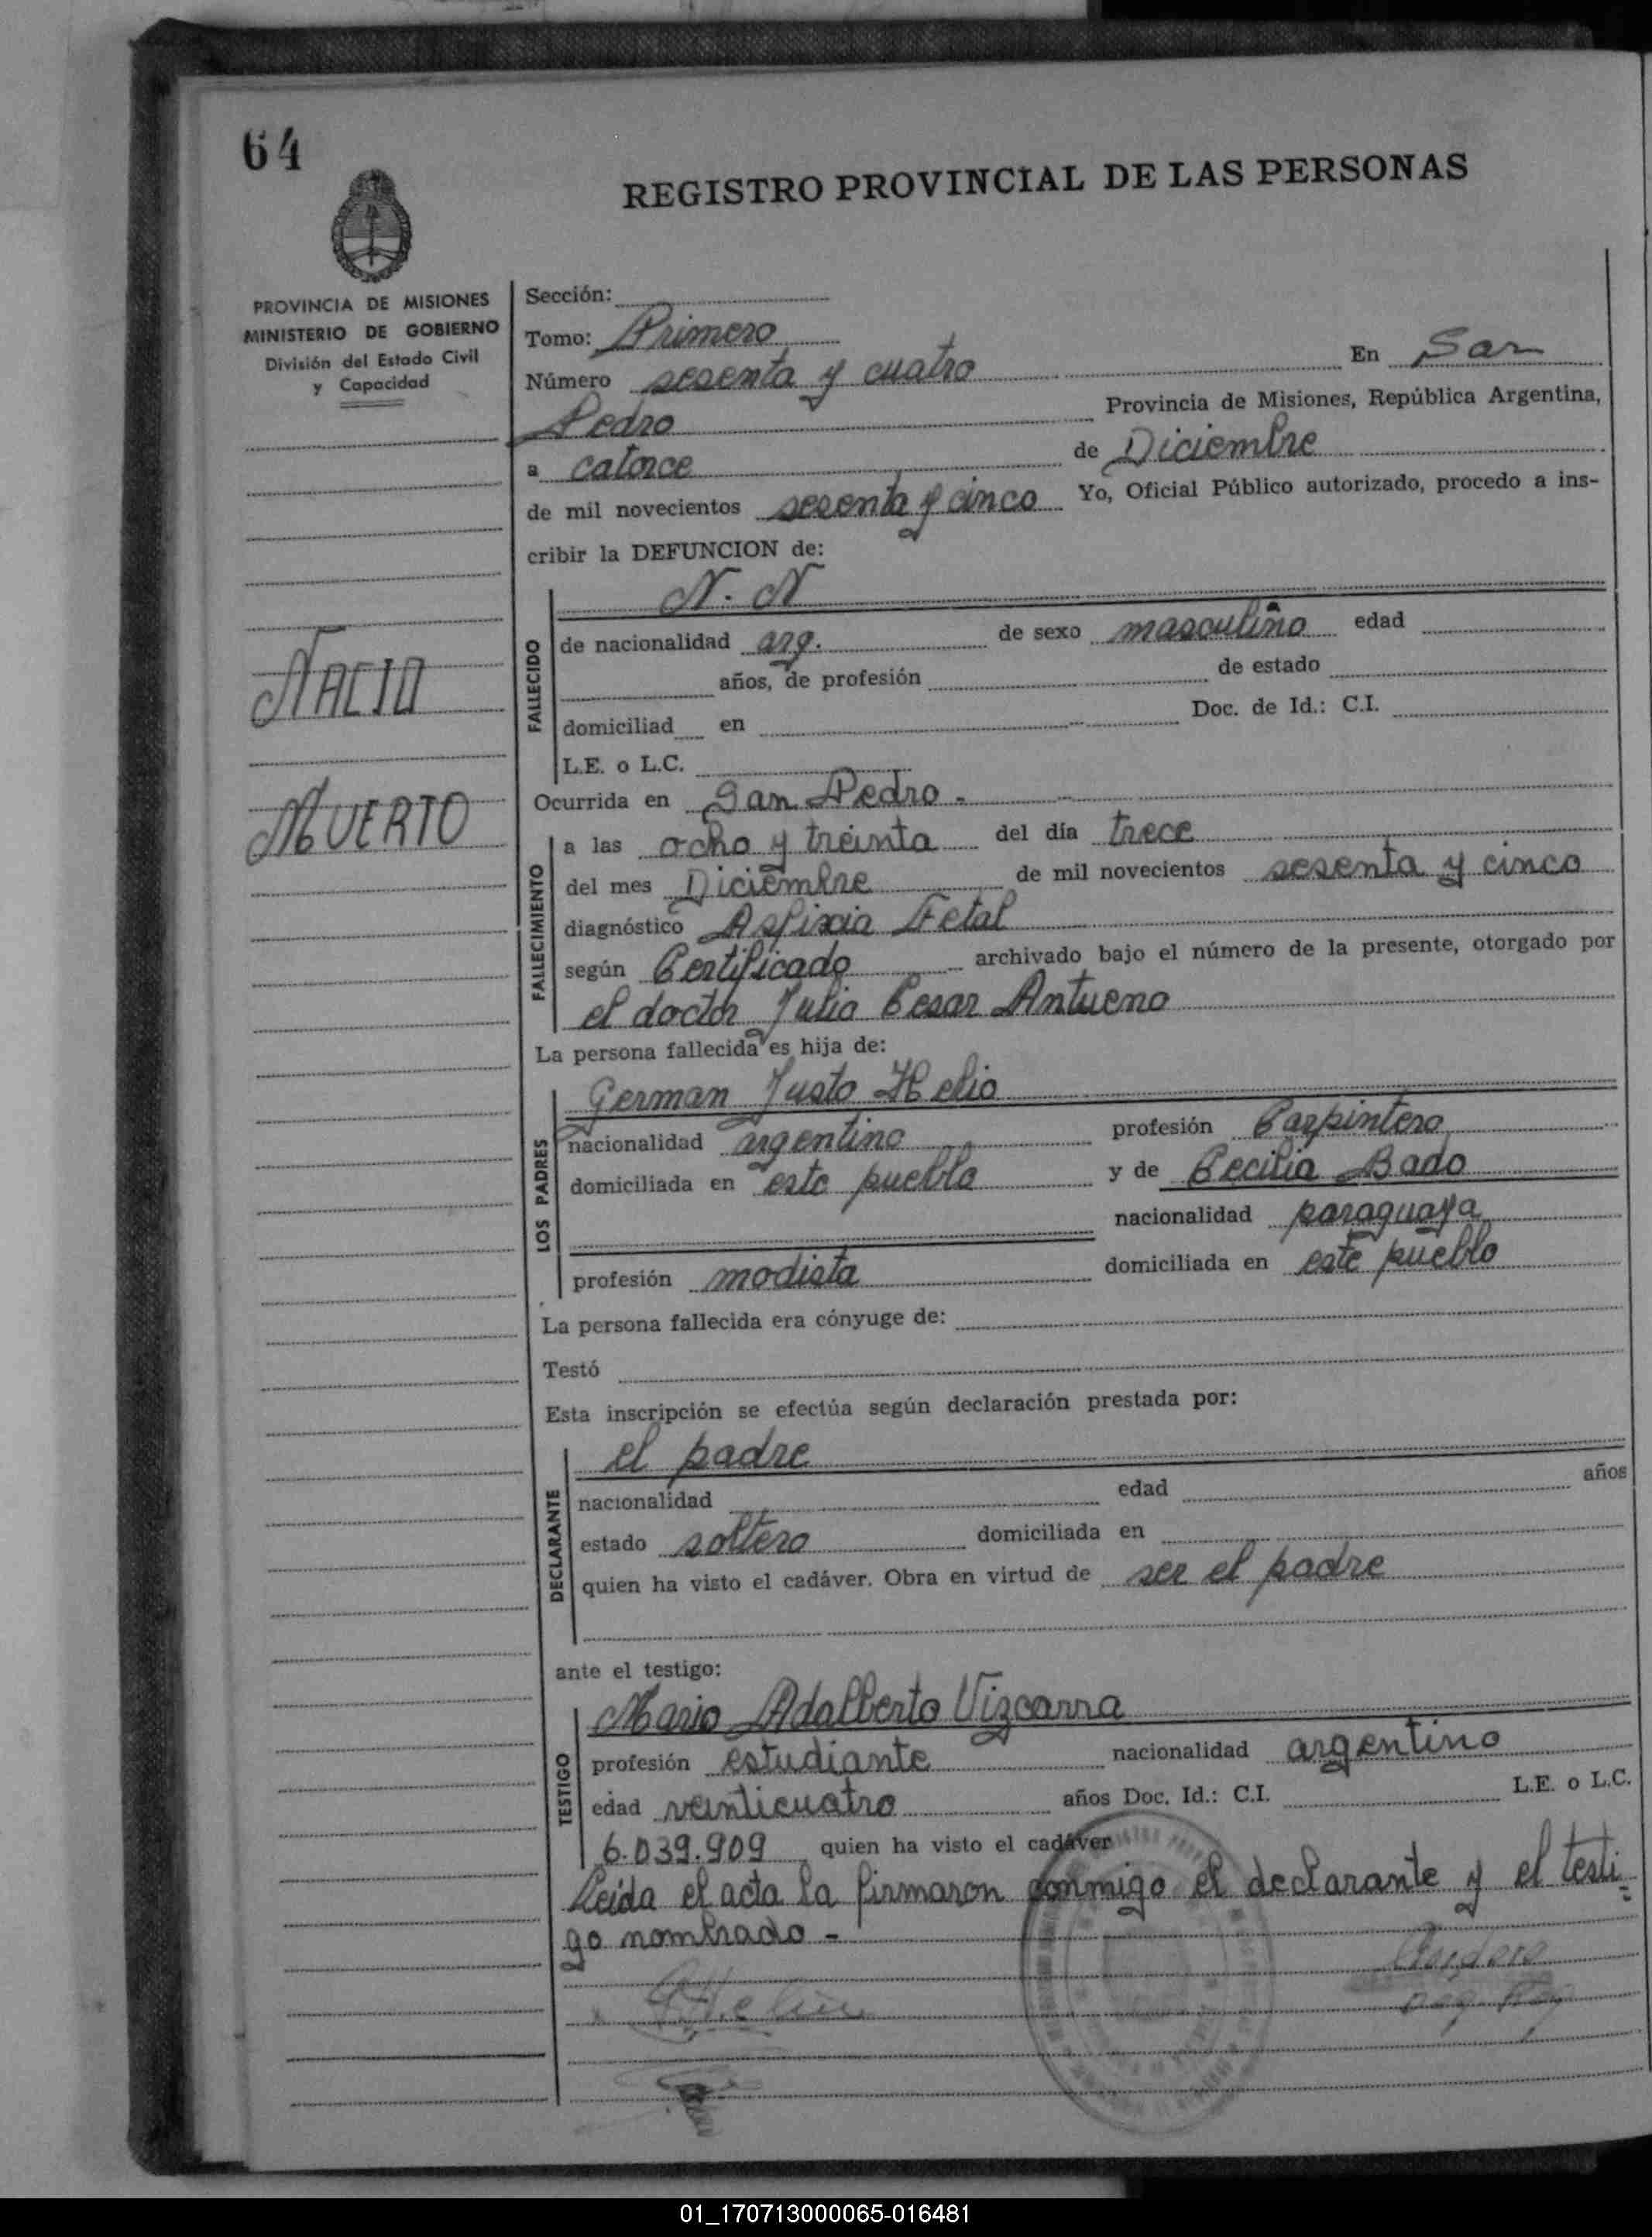 64
REGISTRO PROVINCIAL DE LAS PERSONAS
PROVINCIA DE MISIONES
MINISTERIO DE GOBIERNO
División del Estado Civil
y Capacidad
NACIO
MUERTO
Sección:
Tomo: Primero
Número sesenta y cuatro En San
Pedro Provincia de Misiones, República Argentina,
a catorce de Diciembre
de mil novecientos sesenta y cinco Yo, Oficial Público autorizado, procedo a ins-
cribir la DEFUNCION de:
FALLECIDO
N. N
de nacionalidad arg. de sexo masculino edad
años, de profesión de estado
domiciliad en Doc. de Id.: C.I.
L.E. o L.C.
Ocurrida en San Pedro.-
FALLECIMIENTO
a las ocho y treinta del día trece
del mes Diciembre de mil novecientos sesenta y cinco
diagnóstico Asfixia Fetal
según Certificado archivado bajo el número de la presente, otorgado por
el doctor Julio Cesar Antueno
La persona fallecida es hija de:
LOS PADRES
German Justo Helio
nacionalidad argentino profesión Carpintero
domiciliada en este pueblo y de Cecilia Bado
nacionalidad paraguaya
profesión modista domiciliada en este pueblo
La persona fallecida era cónyuge de:
Testó
Esta inscripción se efectúa según declaración prestada por:
DECLARANTE
el padre
nacionalidad edad años
estado soltero domiciliada en
quien ha visto el cadáver. Obra en virtud de ser el padre
ante el testigo:
TESTIGO
Mario Adalberto Vizcarra
profesión estudiante nacionalidad argentino
edad veinticuatro años Doc. Id.: C.I. L.E. o L.C.
6.039.909 quien ha visto el cadáver
Leida el acta la firmaron conmigo el declarante y el testi-
go nombrado -
01_170713000065-016481